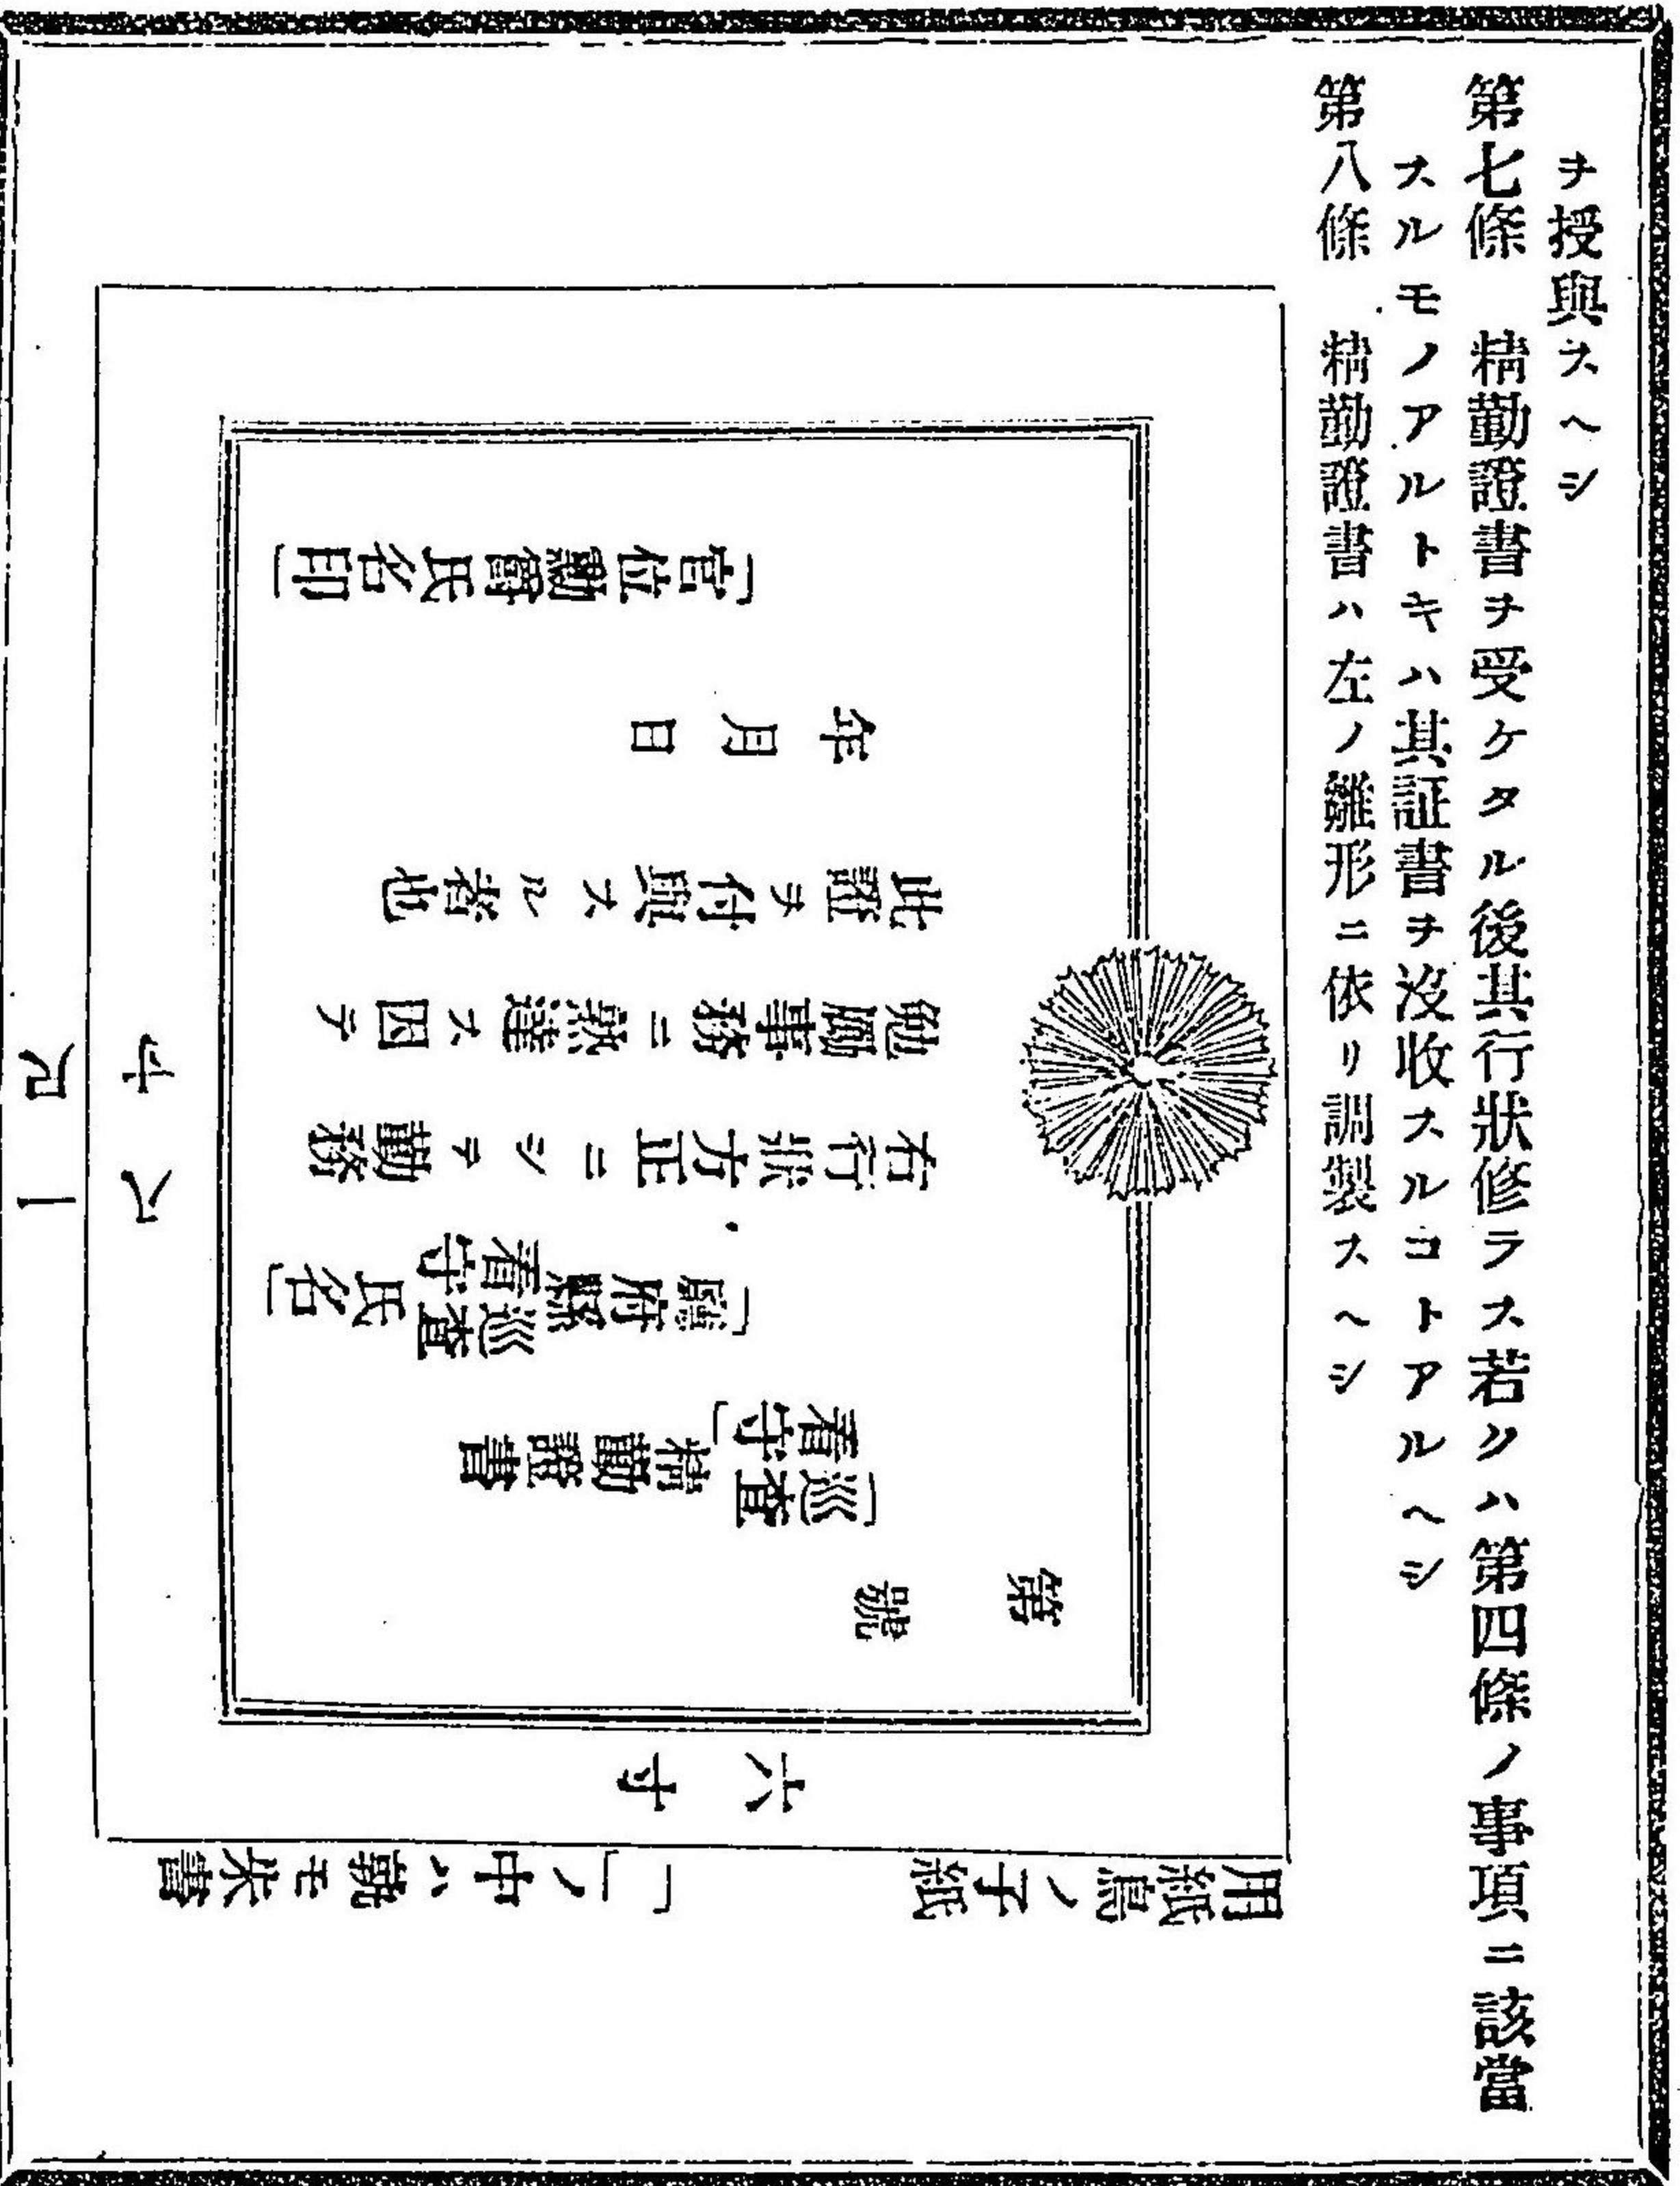 ヲ授與スヘシ
第七條　精勤證書ヲ受ケタル後其行狀修ラス若クハ第四條ノ事項ニ該當
スルモノアルトキハ其証書ヲ沒收スルコトアルヘシ
第八條　精勤證書ハ左ノ雛形ニ依リ調製スヘシ
用紙鳥ノ子紙
「」ノ中ハ孰モ朱書
六寸
一尺
八寸
第　號
「巡查看守」精勤證書
「廳府縣巡查看守氏名」
右行狀方正ニシテ勤務
勉勵事務ニ熟達ス因テ
此證ヲ付與スル者也
年月日
「官位勳爵氏名印」